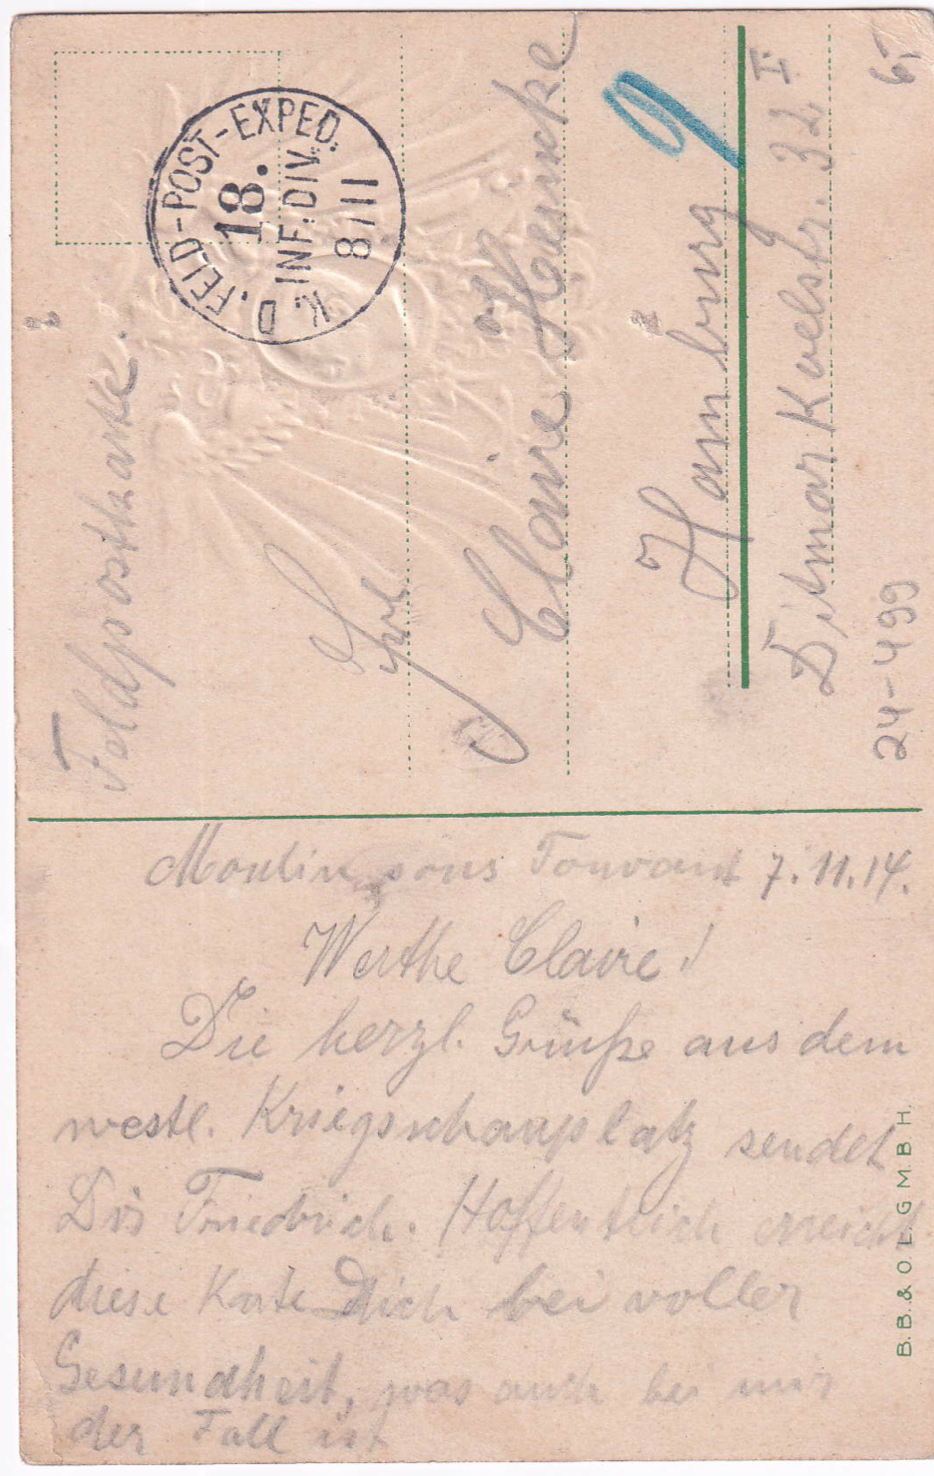 Feldpostkarte.
K. D. FELD-POST-EXPED.
18.
INF.DIV.
8/11
9
Frl
Claire Heincke
Hamburg
Ditmar Koelstr. 32 I.
24-499
6,
Moulin sous Touvent 7.11.14.
Werthe Claire!
Die herzl. Grüße aus dem
westl. Kriegsschauplatz sendet
Dir Friedrich. Hoffentlich erreicht
diese Karte Dich bei voller
Gesundheit, was auch bei mir
der Fall ist
B.B.&O.L.G.M.B.H.